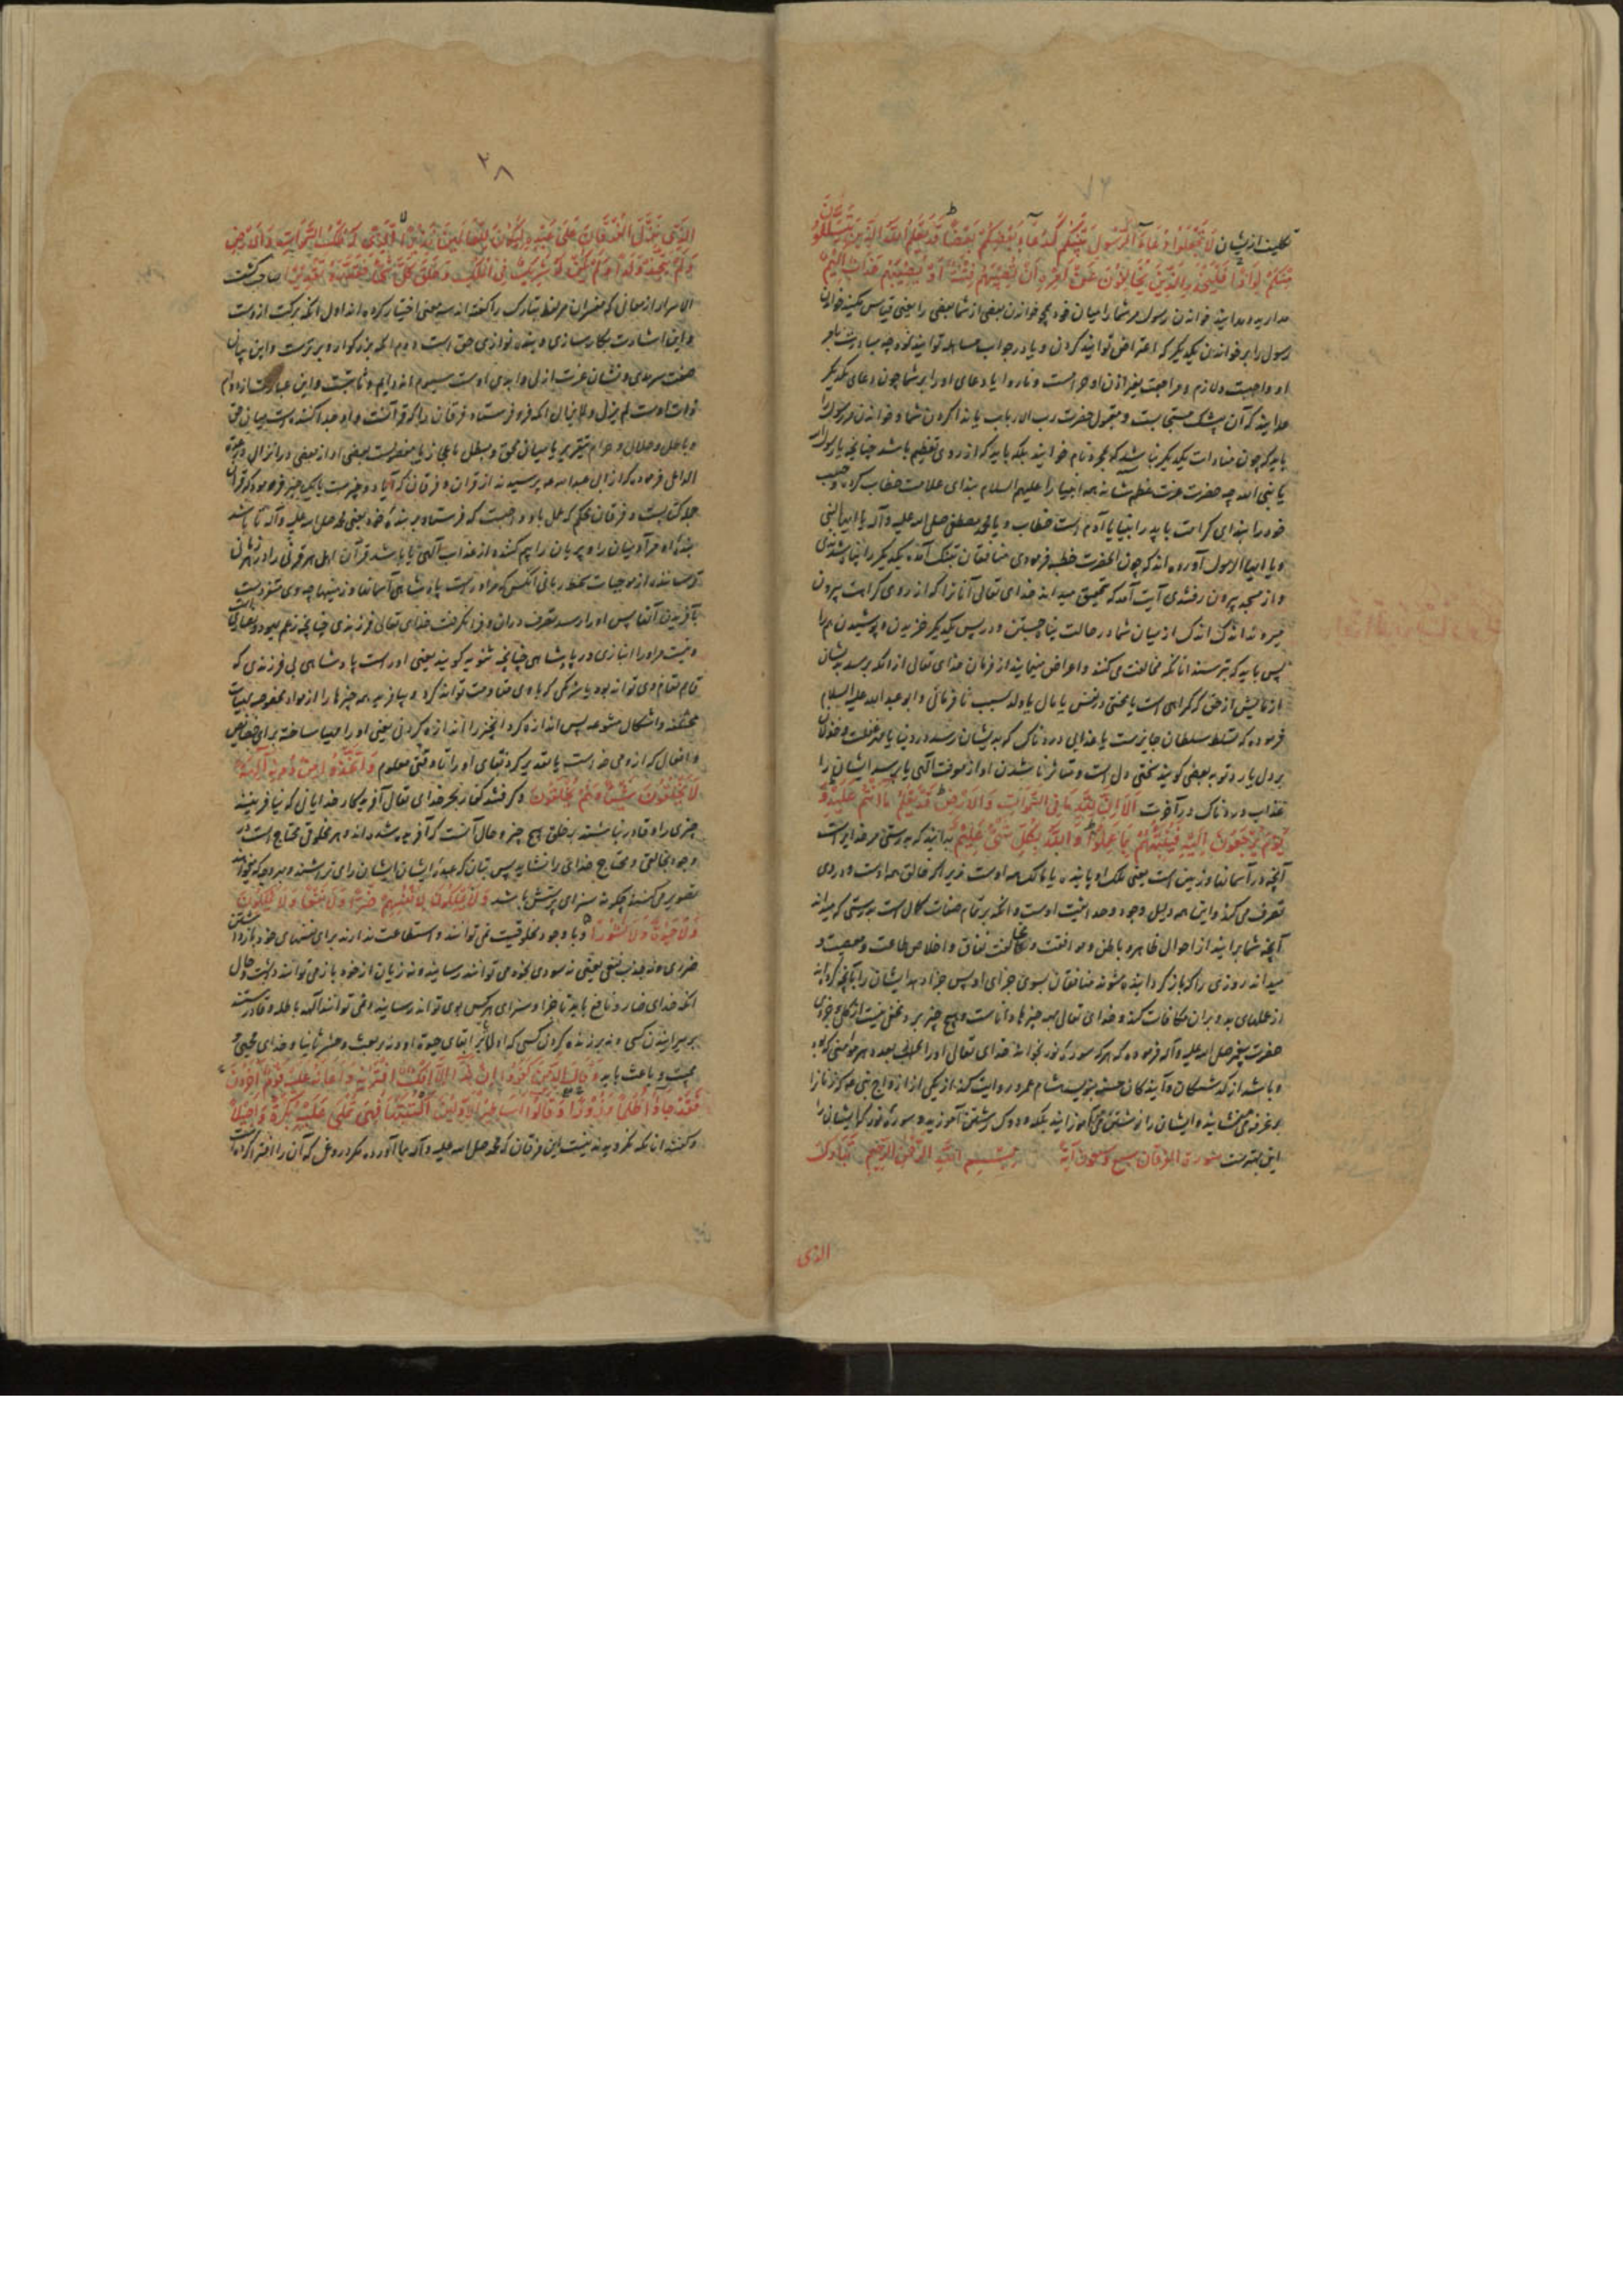 تکلیف ازیشان لَا تَجْعَلُوا دُعَاءَ الرَّسُولِ بَيْنَكُمْ كَدُعَاءِ بَعْضِكُمْ بَعْضًا قَدْ يَعْلَمُ اللَّهُ الَّذِينَ يَتَسَلَّلُونَ
مِنْكُمْ لِوَاذًا فَلْيَحْذَرِ الَّذِينَ يُخَالِفُونَ عَنْ أَمْرِهِ أَنْ تُصِيبَهُمْ فِتْنَةٌ أَوْ يُصِيبَهُمْ عَذَابٌ أَلِيمٌ
خواندن رسول مر شما را میان خود همچو خواندن بعضی از شما بعضی را یعنی قیاس مکنید خواندن
رسول را بر خواندن یکدیگر که اعتراض توانید کردن و یا در جواب
او واجبست و لازم و مراجعت بغیر اذن او حرامست و ناروا یا دعای او را بر شما چون دعای یکدیگر
مدانید که آن بیشک مستجابست و مقبول حضرت رب الارباب یا ندا کردن شما و خواندن مر رسول را
باید که چون منادات یکدیگر نباشد که مجرد نام خوانید بلکه باید که از روی تعظیم باشد چنانچه یا رسول الله
یا نبی الله چه حضرت عزت عظم شانه همه انبیا را علیهم السلام بندای علامت خطاب کرده و حبیب
خود را بندای کرامت یا آدم است خطاب و یا محمد مصطفی صلی الله علیه و آله یا ایها النبی
و یا ایها الرسول آورده اند که چون آنحضرت خطبه فرمودی منافقان بتنگ آمده یکدیگر را
و از مسجد بیرون رفتندی آیت آمد که تحقیق میداند خدای تعالی آنانرا که از روی کراهت بیرون
میروند اندک اندک از میان شما در حالت پناه جستن و در پس یکدیگر خزیدن و پوشیدن هم را
پس باید که بترسند آنانکه مخالفت می کنند و اعراض مینمایند از فرمان خدای تعالی از آنکه برسد بدیشان
آزمایش از حق که گمراهی است یا محنتی در نفس یا مال یا ولد بسبب نافرمانی و ابو عبد الله علیه السلام
فرموده که تسلط سلطان جایرست یا عذابی دردناک که بدیشان رسد در دنیا یا
بر دل یا رد توبه بعضی گویند سختی دل است و متاثر ناشدن او از معرفت الهی یا برسد ایشان را
عذاب دردناک در آخرت أَلَا إِنَّ لِلَّهِ مَا فِي السَّمَوَاتِ وَالْأَرْضِ قَدْ يَعْلَمُ مَا أَنْتُمْ عَلَيْهِ وَ
يَوْمَ يُرْجَعُونَ إِلَيْهِ فَيُنَبِّئُهُمْ بِمَا عَمِلُوا وَاللَّهُ بِكُلِّ شَيْءٍ عَلِيمٌ بدانید که بدرستی مر خدایراست
آنچه در آسمانها و زمین است یعنی ملک او یا مالک همه اوست زیرا که خالق همه اوست و در وی
تصرف می کند و این همه دلیل وجود وحدانیت اوست و آنکه بر تمام صفات کمال است بدرستی که میداند
آنچه شما برانید از احوال ظاهر و باطن و موافقت و مخالفت نفاق و اخلاص طاعت و معصیت و
میداند روزی را که بازگردانیده شوند منافقان بسوی جزای او پس خبر دهد ایشان را بآنچه کرده اند
از عملهای بد و بران مکافات کند و خدای تعالی بهمه چیزها داناست و هیچ چیز بر وی مخفی نیست از کلی و جزوی
حضرت پیغمبر صلی الله علیه و آله فرموده که هر که سوره نور بخواند خدای تعالی او را بعدد هر مومنی که بود
و باشد از گذشتگان و آیندگان حسنه بنویسد هشام عمرو روایت کند از یکی از ازواج نبی علیه که زنان را
بر غرفه می نشانید و ایشان را نوشتن می آموزانید بلکه دوک رشتن آموزید و سوره نور که ایشان را
این بهترست سورة الفرقان سبع وسبعون آية بسم الله الرحمن الرحيم تَبَارَكَ
الذی
٣٨
الَّذِي نَزَّلَ الْفُرْقَانَ عَلَى عَبْدِهِ لِيَكُونَ لِلْعَالَمِينَ نَذِيرًا الَّذِي لَهُ مُلْكُ السَّمَوَاتِ وَالْأَرْضِ
وَلَمْ يَتَّخِذْ وَلَدًا وَلَمْ يَكُنْ لَهُ شَرِيكٌ فِي الْمُلْكِ وَخَلَقَ كُلَّ شَيْءٍ فَقَدَّرَهُ تَقْدِيرًا صاحب کشف
الاسرار از معانی که مفسران مر لفظ تبارک را گفته اند سه معنی اختیار کرده اند اول آنکه برکت ازوست
و این اشارت بکارسازی و بنده نوازی حق است دوم آنکه بزرگوار و برترست و این بیان
صفت سرمدی و نشان عزت ازلی و ابدی اوست سیوم آنکه دایم و ثابتست و این عبارت از دوام
ذات اوست لم یزل و لا یزال آنکه فرو فرستاد فرقان را که قرآنست و او جدا کننده است میان حق
و باطل و حلال و حرام
فرموده که از ابی عبد الله پرسیدند از قرآن و فرقان که آیا دو چیزست یا یک چیز فرمودکه قرآن
جمله کتابست و فرقان محکم که عمل باو واجبست که فرستاد بر بنده خود یعنی محمد صلی الله علیه و آله تا باشد
بنده او مر آدمیان را و پریان را بیم کننده از عذاب الهی یا باشد قرآن اهل هر قرنی را در
ترساننده از موجبات سخط ربانی آنکس که مر او راست پادشاهی آسمانها و زمینها چه وی متفردست
بآفریدن آنها پس او را رسد تصرف دران و فرا نگرفت خدای تعالی فرزندی چنانچه زعم یهود و نصاریست
و نیست مر او را انبازی در پادشاهی چنانچه ثنویه گویند یعنی او راست پادشاهی بی فرزندی که
قائم مقام وی تواند بود یا شریکی که با وی مقاومت تواند کرد و بیافرید همه چیزها را از مواد مخصوصه بهیئات
مختلفه و اشکال متنوعه پس اندازه کرد آنچیز را اندازه کردنی یعنی او را مهیا ساخته برای خصایص
و افعال که ازو می خواست یا تقدیر کرد بقای او را تا وقتی معلوم وَاتَّخَذُوا مِنْ دُونِهِ آلِهَةً
لَا يَخْلُقُونَ شَيْئًا وَهُمْ يُخْلَقُونَ و گرفتند کفار بجز خدای تعالی آفریدگار خدایانی که نیافرینند
چیزی را و قادر نباشند بر خلق هیچ چیز و حال آنست که آفریده شده اند و هر مخلوقی محتاج است در
وجود بخالق و محتاج خدایی را نشاید پس بتان که عبده ایشان ایشان را می تراشند و بهر وجه که خواهند
تصویر می کنند چگونه سزای پرستش باشند وَلَا يَمْلِكُونَ لِأَنْفُسِهِمْ ضَرًّا وَلَا نَفْعًا وَلَا يَمْلِكُونَ
مَوْتًا وَلَا حَيَاةً وَلَا نُشُورًا و با وجود مخلوقیت نمی توانند و استطاعت ندارند برای نفسهای خود بازداشتن
ضرری و نه جذب نفعی یعنی نه سودی بخود می توانند رسانید و نه زیان از خود باز می توانند داشت و حال
آنکه خدای ضار و نافع باید تا جزا و سزای هر کس بوی تواند رسانید و نمی توانند آلهه باطله و قادر نیستند
بر میرانیدن کسی و نه بر زنده کردن کسی که اولا و نه بر بعث و حشر ثانیا و خدای محیی و
ممیت و باعث باید وَقَالَ الَّذِينَ كَفَرُوا إِنْ هَذَا إِلَّا إِفْكٌ افْتَرَاهُ وَأَعَانَهُ عَلَيْهِ قَوْمٌ آخَرُونَ
فَقَدْ جَاءُوا ظُلْمًا وَزُورًا وَقَالُوا أَسَاطِيرُ الْأَوَّلِينَ اكْتَتَبَهَا فَهِيَ تُمْلَى عَلَيْهِ بُكْرَةً وَأَصِيلًا
و گفتند آنانکه نگرویدند نیست این فرقان که محمد صلی الله علیه و آله بما آورده مگر دروغی که آن را افترا کرده است